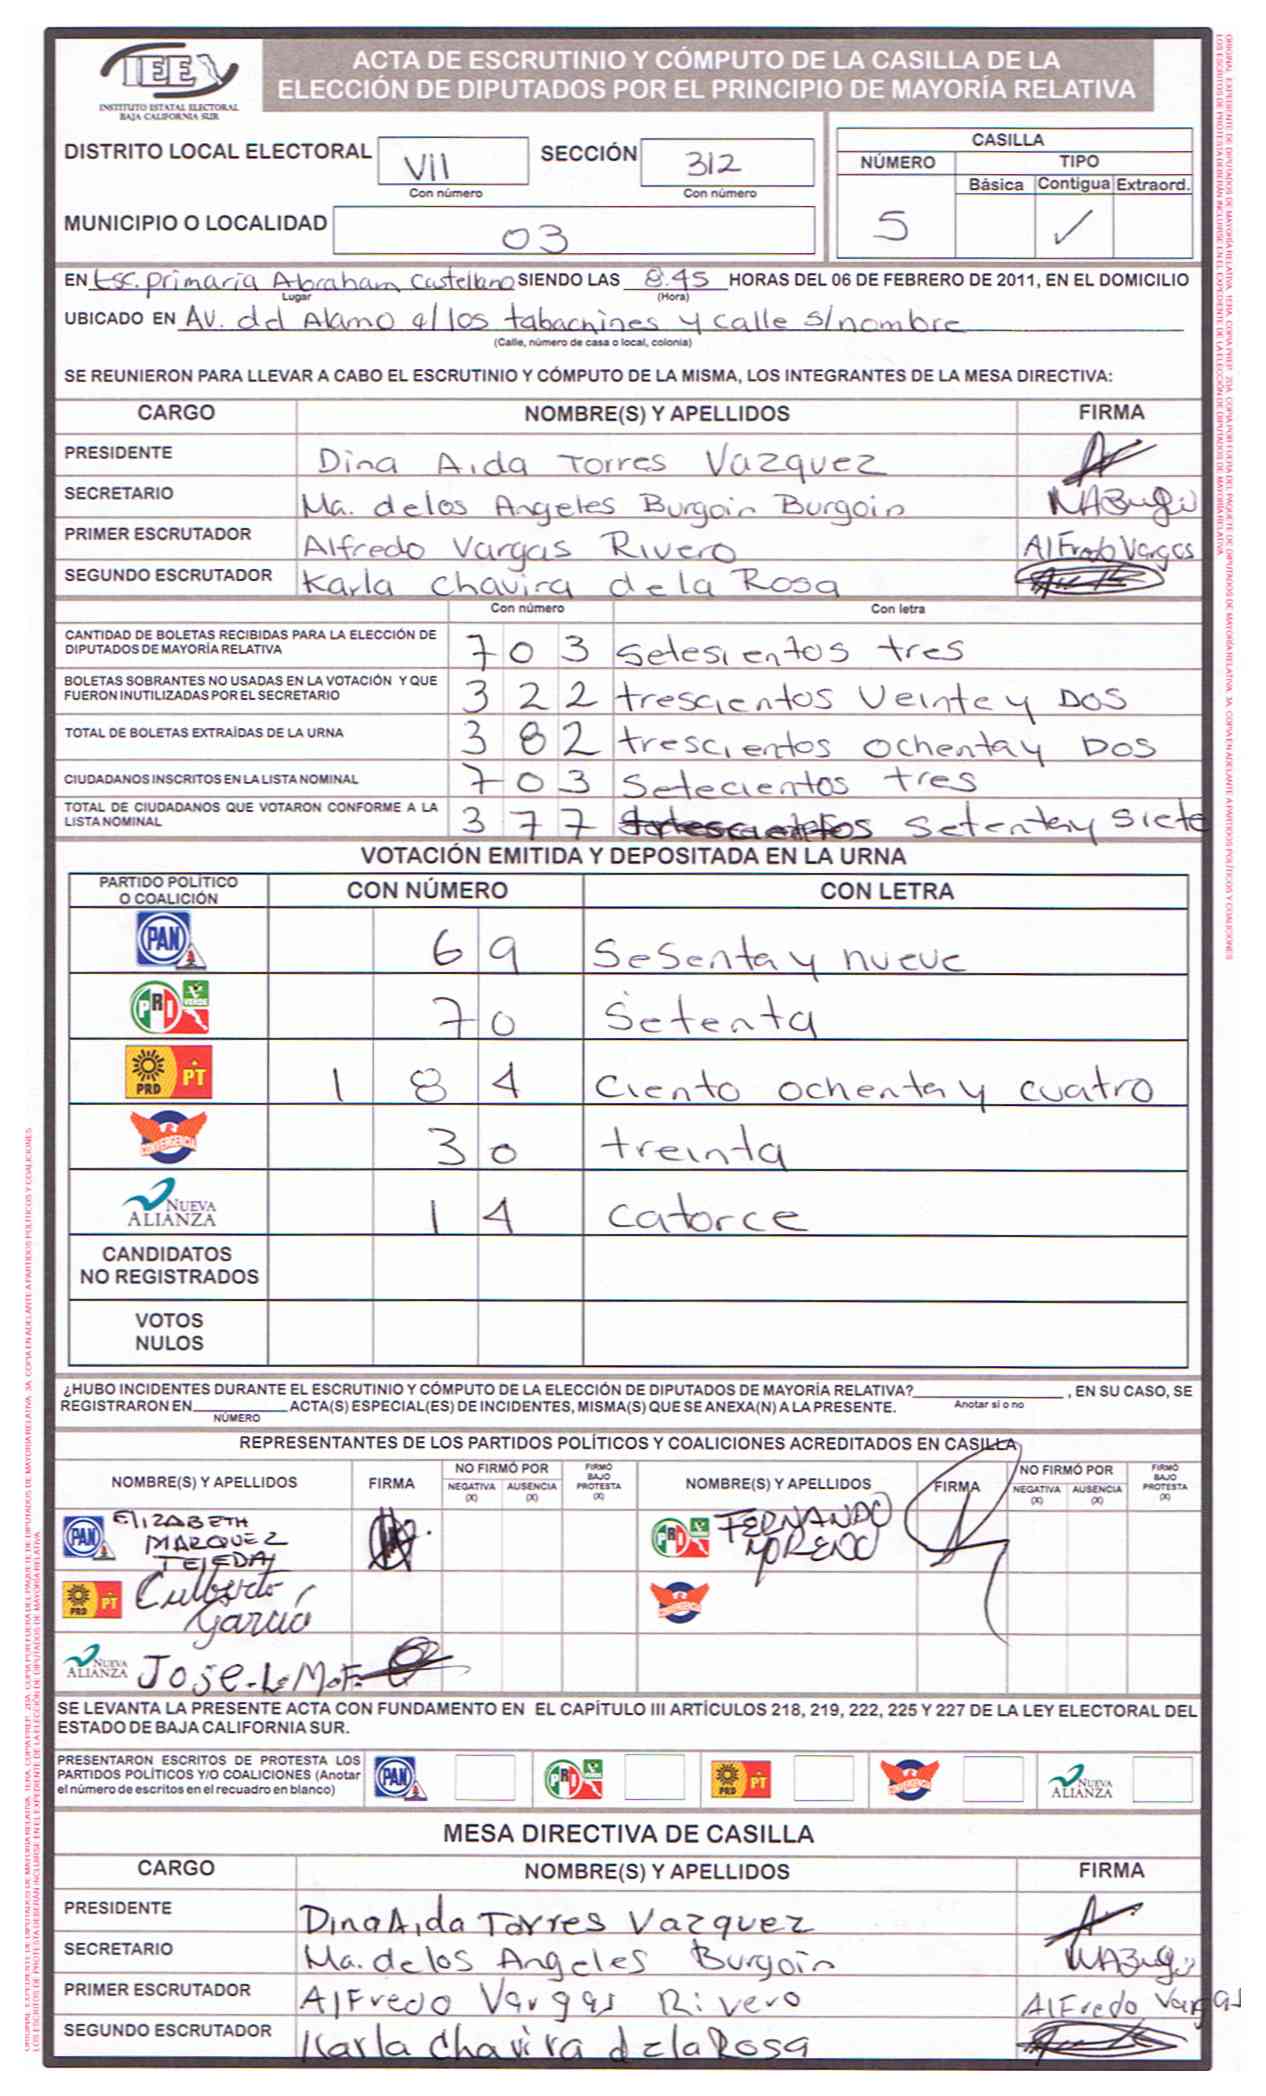 IEE
INSTITUTO ESTATAL ELECTORAL
BAJA CALIFORNIA SUR
ACTA DE ESCRUTINIO Y CÓMPUTO DE LA CASILLA DE LA
ELECCIÓN DE DIPUTADOS POR EL PRINCIPIO DE MAYORÍA RELATIVA
DISTRITO LOCAL ELECTORAL VII SECCIÓN 312
Con número Con número
MUNICIPIO O LOCALIDAD 03
CASILLA
NÚMERO TIPO
Básica Contigua Extraord.
5 ✓
EN Esc. primaria Abraham Castellano SIENDO LAS 8:45 HORAS DEL 06 DE FEBRERO DE 2011, EN EL DOMICILIO
Lugar (Hora)
UBICADO EN AV. del Alamo e/ los tabachines y calle s/nombre
(Calle, número de casa o local, colonia)
SE REUNIERON PARA LLEVAR A CABO EL ESCRUTINIO Y CÓMPUTO DE LA MISMA, LOS INTEGRANTES DE LA MESA DIRECTIVA:
CARGO NOMBRE(S) Y APELLIDOS FIRMA
PRESIDENTE Dina Aida Torres Vazquez
SECRETARIO Ma. delos Angeles Burgoin Burgoin
PRIMER ESCRUTADOR Alfredo Vargas Rivero AlFredo Vargas
SEGUNDO ESCRUTADOR Karla Chavira de la Rosa
Con número Con letra
CANTIDAD DE BOLETAS RECIBIDAS PARA LA ELECCIÓN DE
DIPUTADOS DE MAYORÍA RELATIVA 703 Setesientos tres
BOLETAS SOBRANTES NO USADAS EN LA VOTACIÓN Y QUE
FUERON INUTILIZADAS POR EL SECRETARIO 322 trescientos Veinte y Dos
TOTAL DE BOLETAS EXTRAÍDAS DE LA URNA 382 trescientos ochenta y Dos
CIUDADANOS INSCRITOS EN LA LISTA NOMINAL 703 Setecientos tres
TOTAL DE CIUDADANOS QUE VOTARON CONFORME A LA
LISTA NOMINAL 377 Setenta y Siete
VOTACIÓN EMITIDA Y DEPOSITADA EN LA URNA
PARTIDO POLÍTICO
O COALICIÓN CON NÚMERO CON LETRA
PAN 69 Sesenta y nueve
PRI VERDE 70 Setenta
PRD PT 184 Ciento ochenta y cuatro
CONVERGENCIA 30 treinta
NUEVA ALIANZA 14 catorce
CANDIDATOS
NO REGISTRADOS
VOTOS
NULOS
¿HUBO INCIDENTES DURANTE EL ESCRUTINIO Y CÓMPUTO DE LA ELECCIÓN DE DIPUTADOS DE MAYORÍA RELATIVA? , EN SU CASO, SE
Anotar si o no
REGISTRARON EN ACTA(S) ESPECIAL(ES) DE INCIDENTES, MISMA(S) QUE SE ANEXA(N) A LA PRESENTE.
NÚMERO
REPRESENTANTES DE LOS PARTIDOS POLÍTICOS Y COALICIONES ACREDITADOS EN CASILLA
NOMBRE(S) Y APELLIDOS FIRMA NO FIRMÓ POR NEGATIVA (X) AUSENCIA (X) FIRMÓ BAJO PROTESTA (X) NOMBRE(S) Y APELLIDOS FIRMA NO FIRMÓ POR NEGATIVA (X) AUSENCIA (X) FIRMÓ BAJO PROTESTA (X)
PAN ElIZABETH MARQUEZ TEJEDA PRI VERDE FERNANDO MORENO
PRD PT Culberto García CONVERGENCIA
NUEVA ALIANZA Jose
SE LEVANTA LA PRESENTE ACTA CON FUNDAMENTO EN EL CAPÍTULO III ARTÍCULOS 218, 219, 222, 225 Y 227 DE LA LEY ELECTORAL DEL
ESTADO DE BAJA CALIFORNIA SUR.
PRESENTARON ESCRITOS DE PROTESTA LOS
PARTIDOS POLÍTICOS Y/O COALICIONES (Anotar
el número de escritos en el recuadro en blanco)
PAN PRI VERDE PRD PT CONVERGENCIA NUEVA ALIANZA
MESA DIRECTIVA DE CASILLA
CARGO NOMBRE(S) Y APELLIDOS FIRMA
PRESIDENTE Dina Aida Torres Vazquez
SECRETARIO Ma. de los Angeles Burgoin
PRIMER ESCRUTADOR AlFredo Vargas Rivero AlFredo Vargas
SEGUNDO ESCRUTADOR Karla Chavira de la Rosa